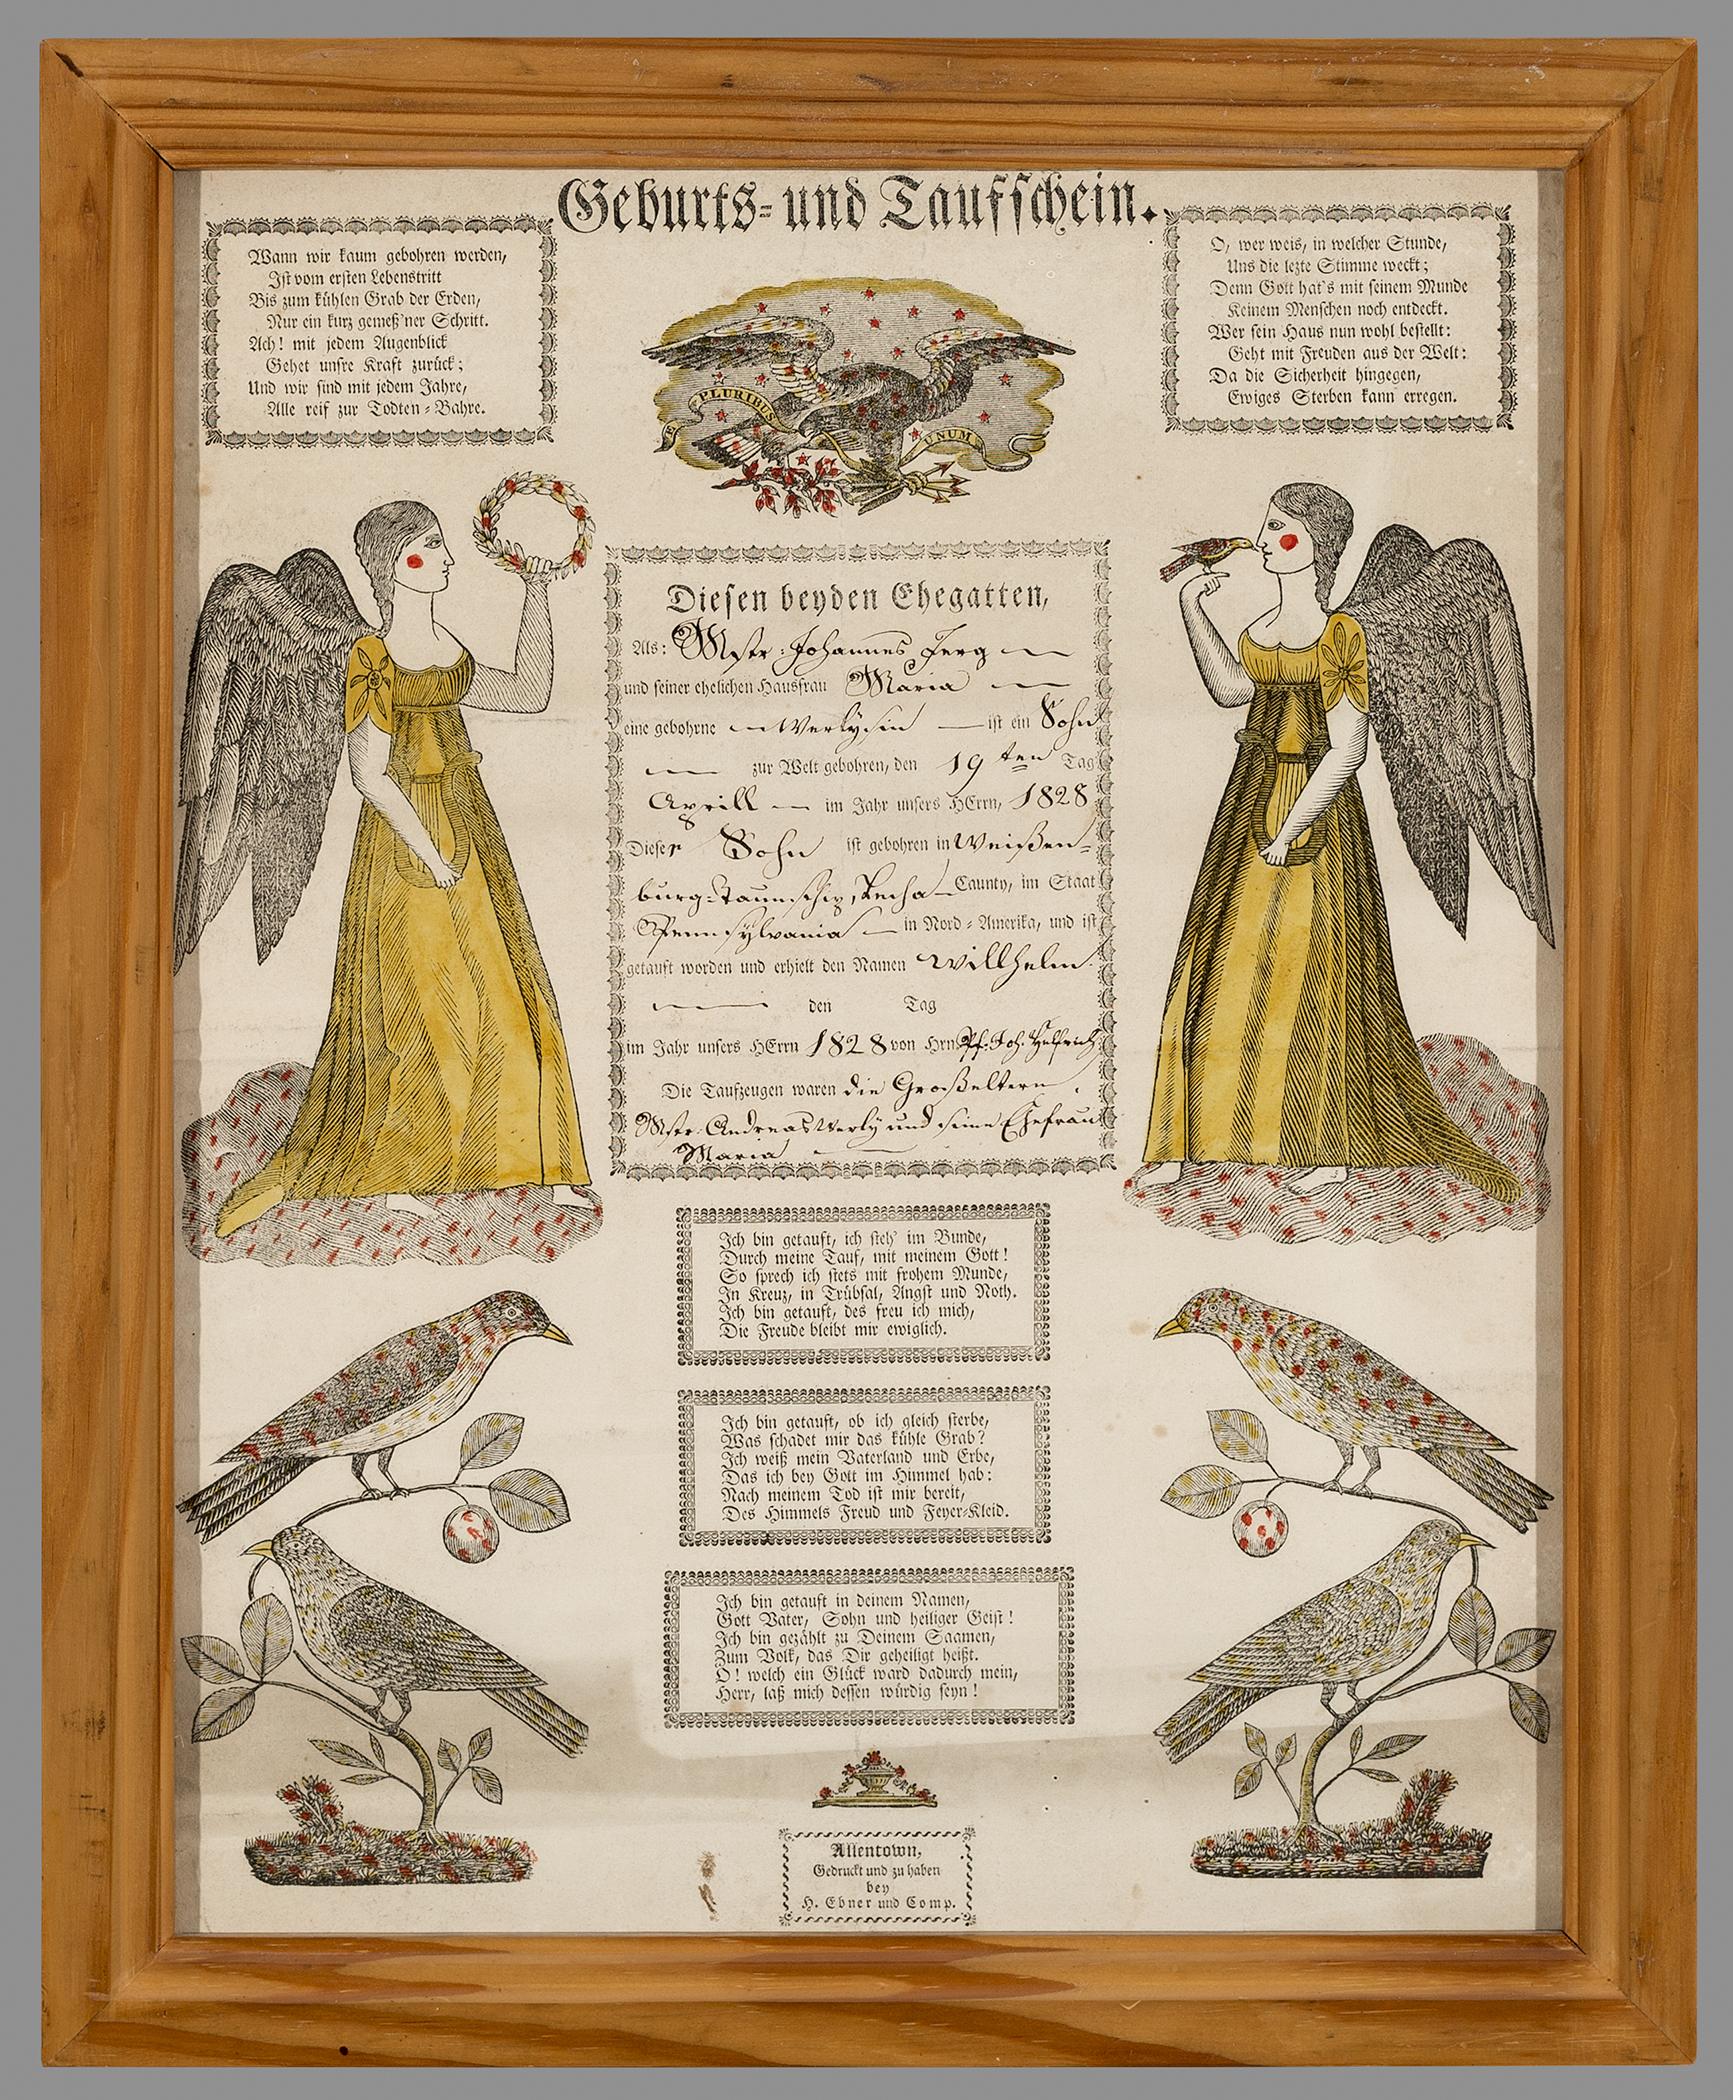 Geburts- und Taufschein.
Wann wir kaum gebohren werden,
Ist vom ersten Lebenstritt
Bis zum kühlen Grab der Erden,
Nur ein kurz gemeß'ner Schritt.
Ach! mit jedem Augenblick
Gehet unsre Kraft zurück;
Und wir sind mit jedem Jahre,
Alle reif zur Todten-Bahre.
O, wer weis, in welcher Stunde,
Uns die lezte Stimme weckt;
Denn Gott hat's mit seinem Munde
Keinem Menschen noch entdeckt.
Wer sein Haus nun wohl bestellt:
Geht mit Freuden aus der Welt:
Da die Sicherheit hingegen,
Ewiges Sterben kann erregen.
E PLURIBUS UNUM
Diesen beyden Ehegatten,
Als: Mstr. Johannes Jerg
und seiner ehelichen Hausfrau Maria
eine gebohrne Werlysin ist ein Sohn
zur Welt gebohren, den 19ten Tag
Aprill im Jahr unsers HErrn, 1828
Dieser Sohn ist gebohren in Weißen-
burg-Taunschip, Lecha Caunty, im Staat
Pennsylvania in Nord-Amerika, und ist
getauft worden und erhielt den Namen Willhelm.
den Tag
im Jahr unsers HErrn 1828 von Hrn Pf. Joh. Helfrich
Die Taufzeugen waren die Großeltern,
Mstr. Andreas Werly und seine Ehefrau
Maria
Ich bin getauft, ich steh' im Bunde,
Durch meine Tauf, mit meinem Gott!
So sprech ich stets mit frohem Munde,
In Kreuz, in Trübsal, Angst und Noth.
Ich bin getauft, des freu ich mich,
Die Freude bleibt mir ewiglich.
Ich bin getauft, ob ich gleich sterbe,
Was schadet mir das kühle Grab?
Ich weiß mein Vaterland und Erbe,
Das ich bey Gott im Himmel hab:
Nach meinem Tod ist mir bereit,
Des Himmels Freud und Feyer-Kleid.
Ich bin getauft in deinem Namen,
Gott Vater, Sohn und heiliger Geist!
Ich bin gezählt zu Deinem Saamen,
Zum Volk, das Dir geheiligt heißt.
O! welch ein Glück ward dadurch mein,
Herr, laß mich dessen würdig seyn!
Allentown,
Gedruckt und zu haben
bey
H. Ebner und Comp.